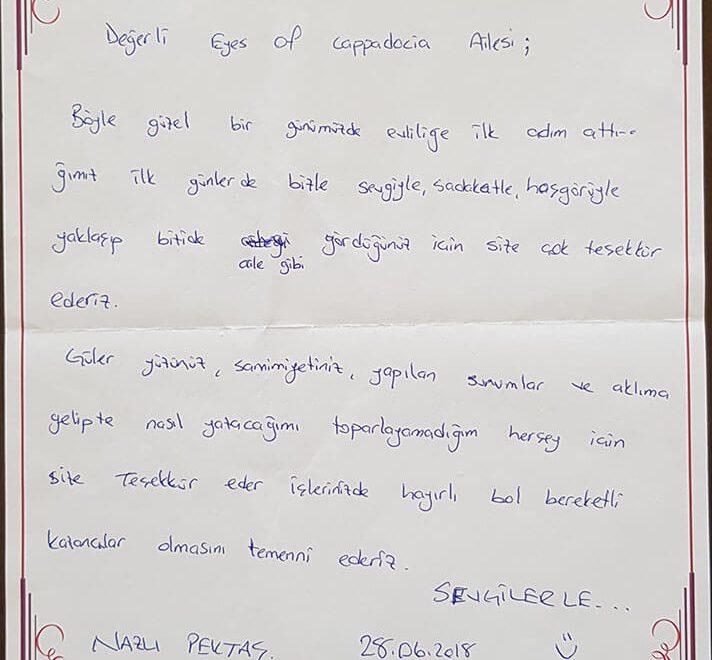 Değerli Eyes of Cappadocia Ailesi;
Böyle güzel bir günümüzde evliliğe ilk adım attı-
ğımız ilk günlerde bizle sevgiyle, sadıkatle, hoşgörüyle
yaklaşıp bizide gördüğünüz için size çok teşekkür
aile gibi
ederiz.
Güler yüzünüz, samimiyetiniz, yapılan sunumlar ve aklıma
gelipte nasıl yazacağımı toparlayamadığım herşey için
size Teşekkür eder işlerinizde hayırlı bol bereketli
kazançlar olmasını temenni ederiz.
SEVGİLERLE...
NAZLI PEKTAŞ. 28.06.2018